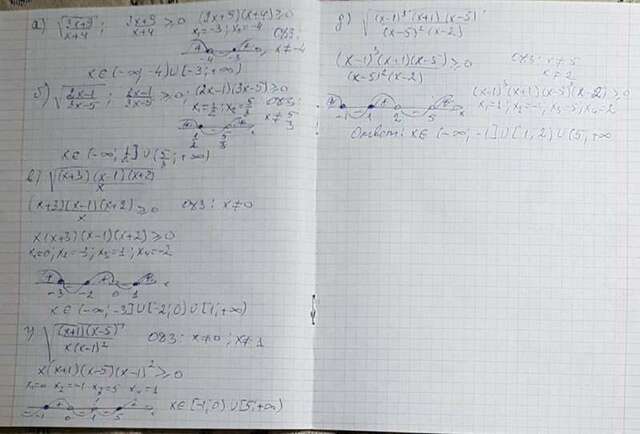 а) √((2x+3)/(x+4)) ; (2x+3)/(x+4) ≥ 0 (2x+5)(x+4) ≥ 0
x₁ = -3 ; x₂ = -4 ОДЗ:
x ≠ -4
-4 -3 x
x ∈ (-∞; -4) ∪ [-3; +∞)
б) √((2x-1)/(3x-5)) ; (2x-1)/(3x-5) ≥ 0 (2x-1)(3x-5) ≥ 0
x₁ = 1/2 ; x₂ = 5/3 ОДЗ:
x ≠ 5/3
1/2 5/3 x
x ∈ (-∞; 1/2] ∪ (5/3; +∞)
в) √((x+3)(x-1)(x+2)/x)
(x+3)(x-1)(x+2)/x ≥ 0 ОДЗ: x ≠ 0
x(x+3)(x-1)(x+2) ≥ 0
x₁ = 0; x₂ = -3; x₃ = 1; x₄ = -2
-3 -2 0 1 x
x ∈ (-∞; -3] ∪ [-2; 0) ∪ [1; +∞)
г) √((x+1)(x-5)/(x(x-1)²)) ОДЗ: x ≠ 0; x ≠ 1
x(x+1)(x-5)(x-1)² ≥ 0
x₁ = 0 x₂ = -1 x₃ = 5 x₄ = 1
-1 0 1 5 x
x ∈ [-1; 0) ∪ [5; +∞)
д) √((x-1)³(x+1)(x-5)/((x-5)²(x-2)))
(x-1)³(x+1)(x-5)/((x-5)²(x-2)) ≥ 0 ОДЗ: x ≠ 5
x ≠ 2
(x-1)³(x+1)(x-5)³(x-2) ≥ 0
x₁ = 1; x₂ = -1; x₃ = 5; x₄ = 2
-1 1 2 5 x
Ответ: x ∈ (-∞; -1] ∪ [1; 2) ∪ (5; +∞